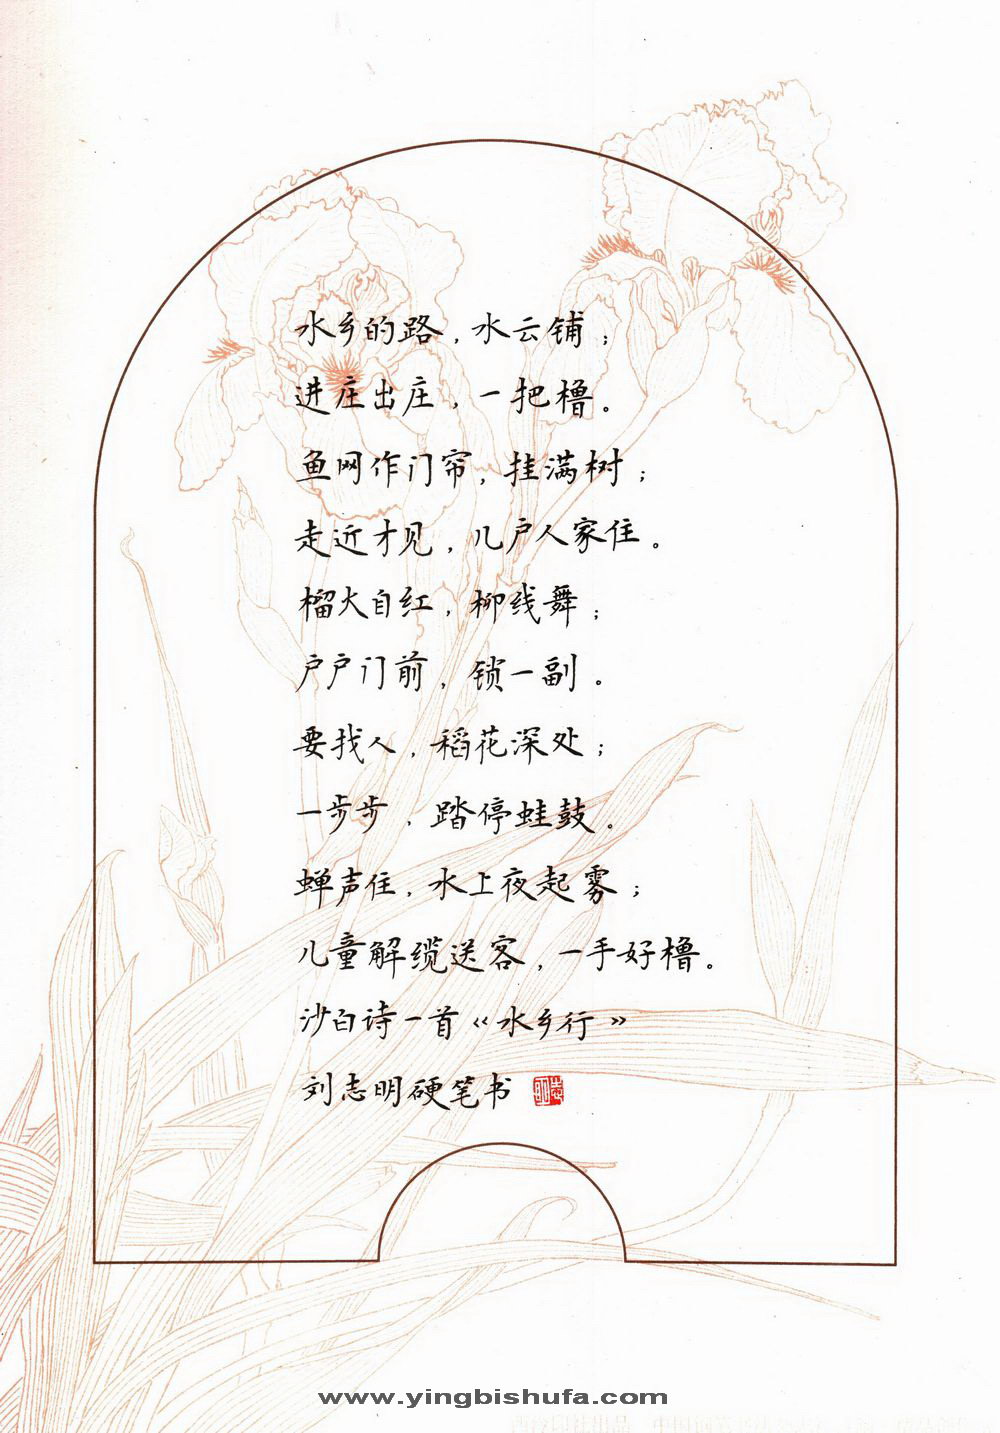 水乡的路，水云铺；
进庄出庄，一把橹。
鱼网作门帘，挂满树；
走近才见，几户人家住。
榴火自红，柳线舞；
户户门前，锁一副。
要找人，稻花深处；
一步步，踏停蛙鼓。
蝉声住，水上夜起雾；
儿童解缆送客，一手好橹。
沙白诗一首《水乡行》
刘志明硬笔书
www.yingbishufa.com